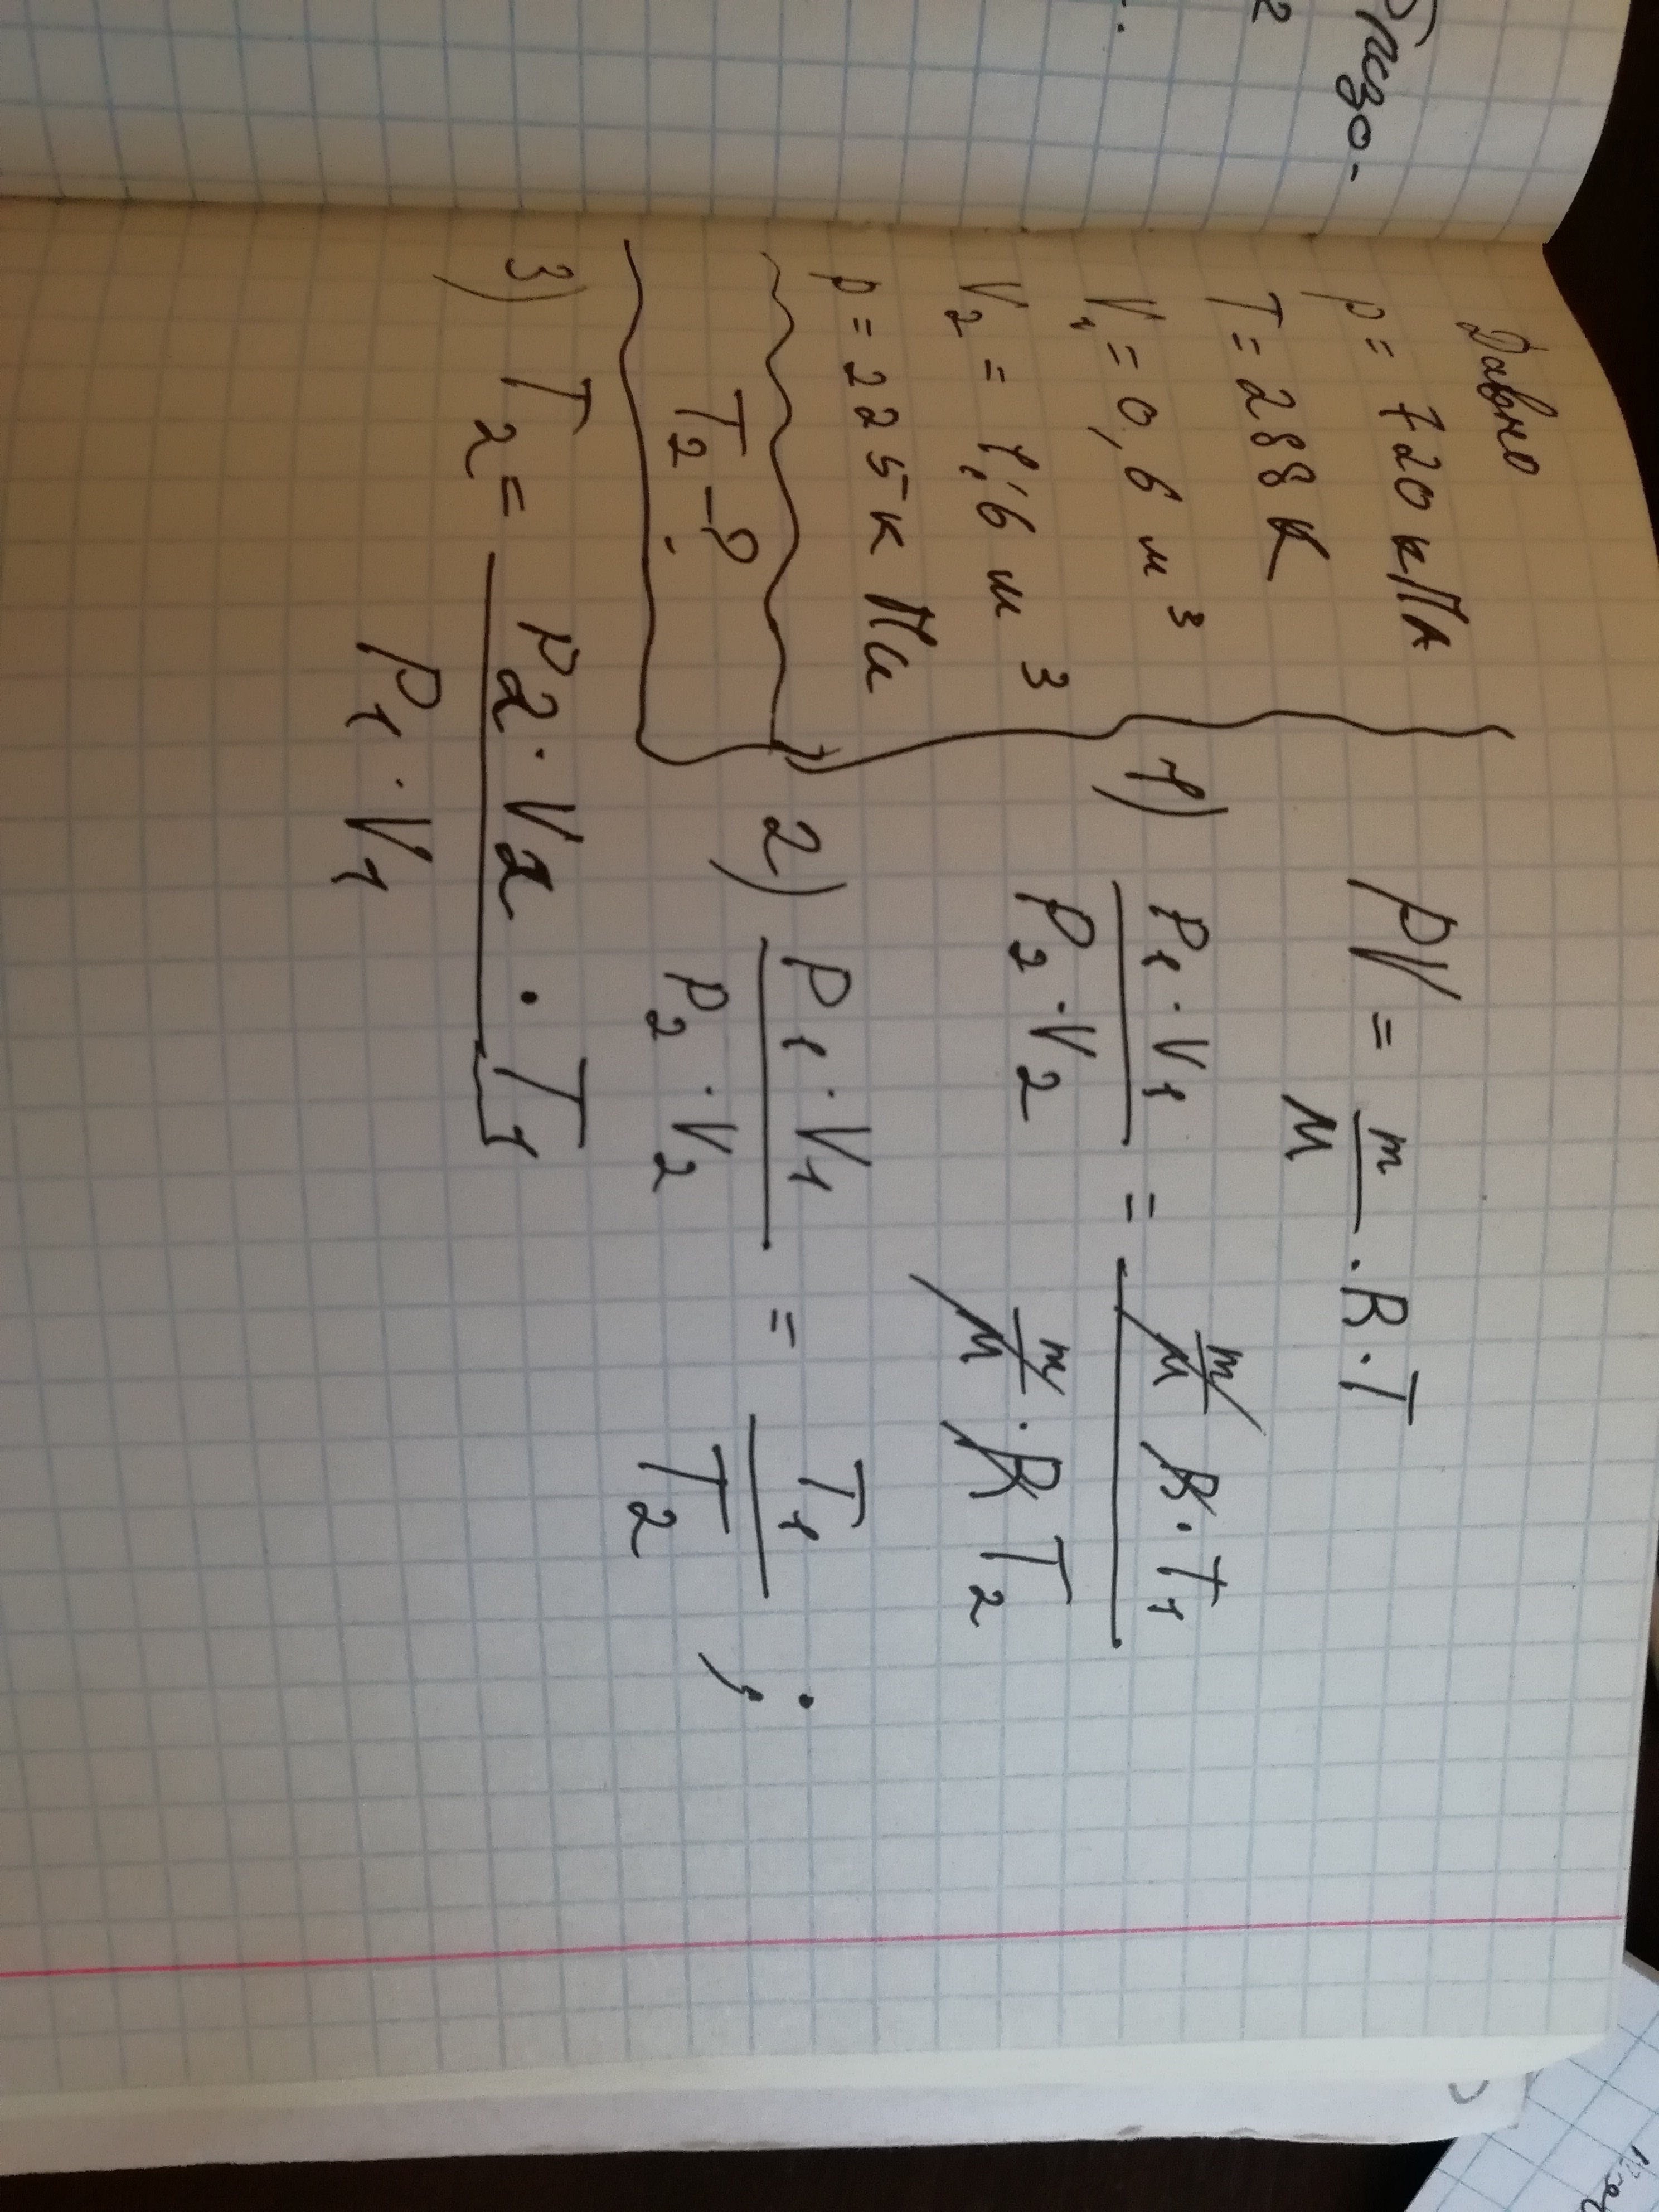 Празо-
2
Давно
p = 720 кПа
T = 288 K
V₁ = 0,6 м³
V₂ = 1,6 м³
p = 225 кПа
T₂ - ?
PV = m/M · R · T
1) P₁ · V₁ / P₂ · V₂ = m/M R · T₁ / m/M · R T₂
2) P₁ · V₁ / P₂ · V₂ = T₁ / T₂ ;
3) T₂ = P2 · V2 · T1 / P₁ · V1